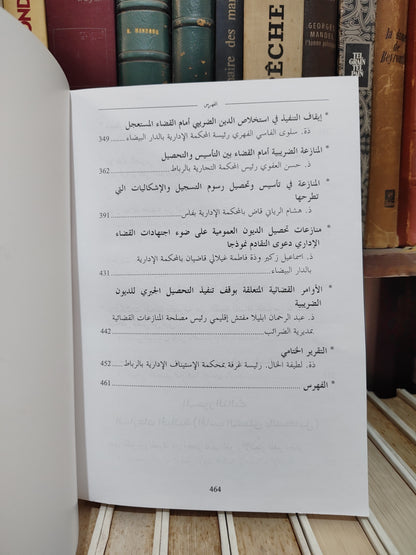 الفهرس
* إيقاف التنفيذ في استخلاص الدين الضريبي أمام القضاء المستعجل
ذة. سلوى الفاسي الفهري رئيسة المحكمة الإدارية بالدار البيضاء 349
* المنازعة الضريبية أمام القضاء بين التأسيس والتحصيل
ذ. حسن العفوي رئيس المحكمة التجارية بالرباط 362
* المنازعة في تأسيس وتحصيل رسوم التسجيل والإشكاليات التي
تطرحها
ذ. هشام الرباني قاض بالمحكمة الإدارية بفاس 391
* منازعات تحصيل الديون العمومية على ضوء اجتهادات القضاء
الإداري دعوى التقادم نموذجا
ذ. اسماعيل زكير وذة فاطمة غيلالي قاضيان بالمحكمة الإدارية
بالدار البيضاء 431
* الأوامر القضائية المتعلقة بوقف تنفيذ التحصيل الجبري للديون
الضريبية
ذ. عبد الرحمان ابليلا مفتش إقليمي رئيس مصلحة المنازعات القضائية
بمديرية الضرائب 442
* التقرير الختامي
ذة. لطيفة الخال. رئيسة غرفة بمحكمة الإستيناف الإدارية بالرباط 452
* الفهرس 461
464
GEORGES
MANDEL
PÊCHE
TEL
GRAIN
TEL
PAIN